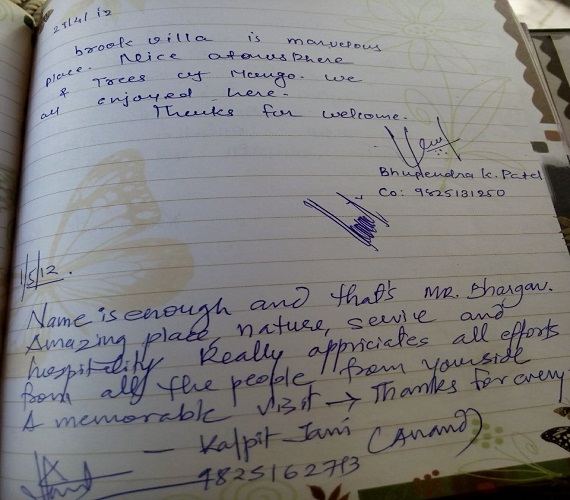 29/4/12
brook villa is marvelous
place. Nice atmusphere
& Trees of Mango. we
all enjoyed here.
Thanks for welcome.
Bhupendra k. Patel
Co: 9825131250
1/5/12.
Name is enough and that's MR. Bhargav.
Amazing place, nature, service and
hospitality Really appriciates all efforts
from all the people from yourside
A memorable visit → Thanks for every
— Kalpit Jani (Anand)
9825162793